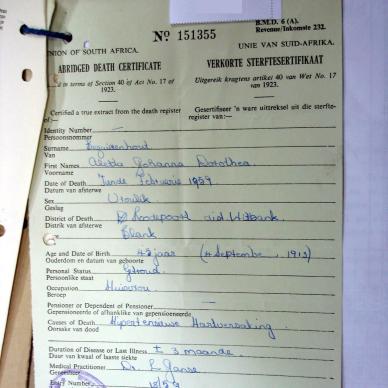 B.M.D. 6 (A).
Revenue/Inkomste 232.
No 151355
UNION OF SOUTH AFRICA.
UNIE VAN SUID-AFRIKA.
ABRIDGED DEATH CERTIFICATE
VERKORTE STERFTESERTIFIKAAT
in terms of Section 40 of Act No. 17 of 1923.
Uitgereik kragtens artikel 40 van Wet No. 17 van 1923.
Certified a true extract from the death register of:—
Gesertifiseer 'n ware uittreksel uit die sterfteregister van:—
Identity Number —
Persoonsnommer
Surname Bezuidenhout
Van
First Names Aletta Johanna Dorothea.
Voorname
Date of Death Februarie 1957
Datum van afsterwe
Sex Vroulik
Geslag
District of Death Roodepoort dist. Witbank
Distrik van afsterwe
Blank
Age and Date of Birth 43 jaar (4 September, 1913)
Ouderdom en datum van geboorte
Personal Status Getroud
Persoonlike staat
Occupation Huisvrou
Beroep
Pensioner or Dependent of Pensioner —
Gepensioneerde of afhanklike van gepensioneerde
Causes of Death Hipertensiewe Hartversaking
Oorsake van dood
Duration of Disease or Last Illness ± 3 maande
Duur van kwaal of laaste siekte
Medical Practitioner Dr.
Geneesheer
Entry Number